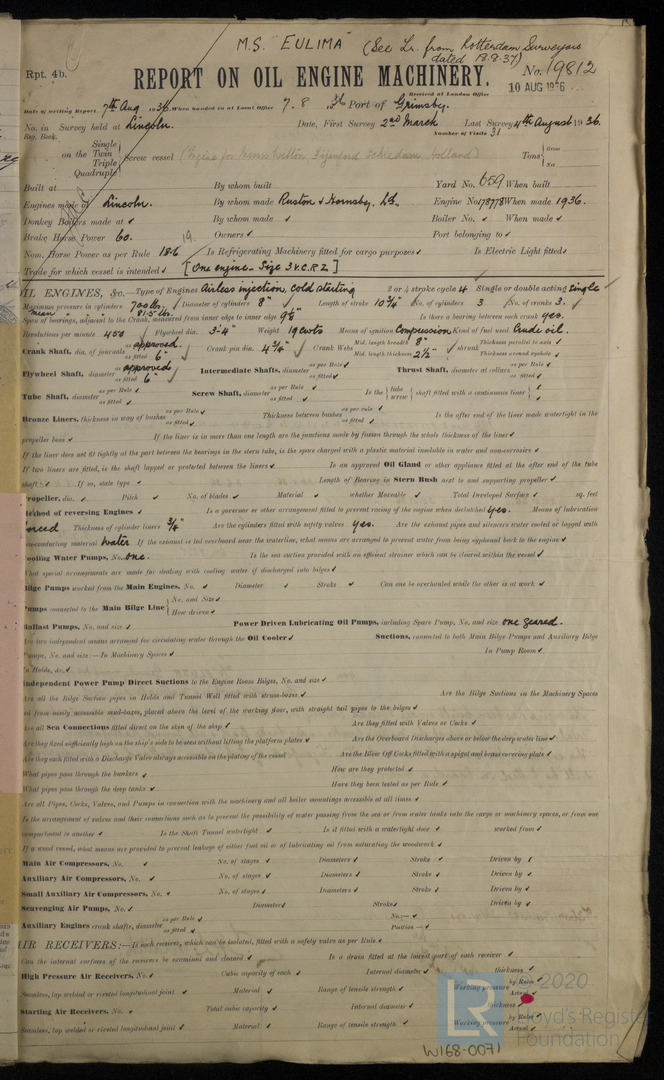 M.S. "EULIMA" (See Lr. from Rotterdam Surveyors
dated 18.8.37)
Rpt. 4b.
REPORT ON OIL ENGINE MACHINERY. No. 19812
Received at London Office 10 AUG 1936
Date of writing Report 7th Aug 1936 When handed in at Local Office 7. 8 36 Port of Grimsby.
No. in Survey held at Lincoln. Date, First Survey 2nd March Last Survey 4th August 1936.
Reg. Book. Number of Visits 31
Single
on the Twin Screw vessel
Triple
Quadruple
Tons Gross
Net
Built at By whom built Yard No. 659 When built
Engines made at Lincoln. By whom made Ruston & Hornsby. Ld. Engine No. 178778 When made 1936.
Donkey Boilers made at ✓ By whom made ✓ Boiler No. ✓ When made ✓
Brake Horse Power 60. Owners ✓ Port belonging to ✓
Nom. Horse Power as per Rule 18.6 Is Refrigerating Machinery fitted for cargo purposes ✓ Is Electric Light fitted ✓
Trade for which vessel is intended ✓ [One engine. Size 3 V.C.R.Z.]
OIL ENGINES, &c.—Type of Engines Airless injection, cold starting 2 or 4 stroke cycle 4 Single or double acting Single
Maximum pressure in cylinders 700 lbs. Diameter of cylinders 8" Length of stroke 10 3/4" No. of cylinders 3 No. of cranks 3.
mean 81.5 lbs.
Span of bearings, adjacent to the Crank, measured from inner edge to inner edge 9 5/8" Is there a bearing between each crank yes.
Revolutions per minute 450 Flywheel dia. 3'-4" Weight 19 cwts Means of ignition Compression Kind of fuel used Crude oil.
Crank Shaft, dia. of journals as per Rule approved. as fitted 6" Crank pin dia. 4 3/4" Crank Webs Mid. length breadth 8" Mid. length thickness 2 1/2" shrunk Thickness parallel to axis ✓ Thickness around eyehole ✓
Flywheel Shaft, diameter as per Rule approved as fitted 6" Intermediate Shafts, diameter as per Rule ✓ as fitted ✓ Thrust Shaft, diameter at collars as per Rule ✓ as fitted ✓
Tube Shaft, diameter as per Rule ✓ as fitted ✓ Screw Shaft, diameter as per Rule ✓ as fitted ✓ Is the tube screw shaft fitted with a continuous liner ✓
Bronze Liners, thickness in way of bushes as per Rule ✓ as fitted ✓ Thickness between bushes as per rule ✓ as fitted ✓ Is the after end of the liner made watertight in the
propeller boss ✓ If the liner is in more than one length are the junctions made by fusion through the whole thickness of the liner ✓
If the liner does not fit tightly at the part between the bearings in the stern tube, is the space charged with a plastic material insoluble in water and non-corrosive ✓
If two liners are fitted, is the shaft lapped or protected between the liners ✓ Is an approved Oil Gland or other appliance fitted at the after end of the tube
shaft ✓ If so, state type ✓ Length of Bearing in Stern Bush next to and supporting propeller ✓
Propeller, dia. ✓ Pitch ✓ No. of blades ✓ Material ✓ whether Moveable ✓ Total Developed Surface ✓ sq. feet
Method of reversing Engines ✓ Is a governor or other arrangement fitted to prevent racing of the engine when declutched yes. Means of lubrication
forced Thickness of cylinder liners 3/4" Are the cylinders fitted with safety valves yes. Are the exhaust pipes and silencers water cooled or lagged with
non-conducting material water If the exhaust is led overboard near the waterline, what means are arranged to prevent water from being syphoned back to the engine ✓
Cooling Water Pumps, No. one. Is the sea suction provided with an efficient strainer which can be cleared within the vessel ✓
What special arrangements are made for dealing with cooling water if discharged into bilges ✓
Bilge Pumps worked from the Main Engines, No. ✓ Diameter ✓ Stroke ✓ Can one be overhauled while the other is at work ✓
Pumps connected to the Main Bilge Line No. and Size ✓ How driven ✓
Ballast Pumps, No. and size ✓ Power Driven Lubricating Oil Pumps, including Spare Pump, No. and size one geared.
Are two independent means arranged for circulating water through the Oil Cooler ✓ Suctions, connected to both Main Bilge Pumps and Auxiliary Bilge
Pumps, No. and size:—In Machinery Spaces ✓ In Pump Room ✓
In Holds, &c. ✓
Independent Power Pump Direct Suctions to the Engine Room Bilges, No. and size ✓
Are all the Bilge Suction pipes in Holds and Tunnel Well fitted with strum-boxes ✓ Are the Bilge Suctions in the Machinery Spaces
led from easily accessible mud-boxes, placed above the level of the working floor, with straight tail pipes to the bilges ✓
Are all Sea Connections fitted direct on the skin of the ship ✓ Are they fitted with Valves or Cocks ✓
Are they fixed sufficiently high on the ship's side to be seen without lifting the platform plates ✓ Are the Overboard Discharges above or below the deep water line ✓
Are they each fitted with a Discharge Valve always accessible on the plating of the vessel Are the Blow Off Cocks fitted with a spigot and brass covering plate ✓
What pipes pass through the bunkers ✓ How are they protected ✓
What pipes pass through the deep tanks ✓ Have they been tested as per Rule ✓
Are all Pipes, Cocks, Valves, and Pumps in connection with the machinery and all boiler mountings accessible at all times ✓
Is the arrangement of valves and their connections such as to prevent the possibility of water passing from the sea or from water tanks into the cargo or machinery spaces, or from one
compartment to another ✓ Is the Shaft Tunnel watertight ✓ Is it fitted with a watertight door ✓ worked from ✓
If a wood vessel, what means are provided to prevent leakage of either fuel oil or of lubricating oil from saturating the woodwork ✓
Main Air Compressors, No. ✓ No. of stages ✓ Diameters ✓ Stroke ✓ Driven by ✓
Auxiliary Air Compressors, No. ✓ No. of stages ✓ Diameters ✓ Stroke ✓ Driven by ✓
Small Auxiliary Air Compressors, No. ✓ No. of stages ✓ Diameters ✓ Stroke ✓ Driven by ✓
Scavenging Air Pumps, No. ✓ Diameter ✓ Stroke ✓ Driven by ✓
Auxiliary Engines crank shafts, diameter as per Rule ✓ as fitted ✓ No.:— ✓ Position— ✓
AIR RECEIVERS:—Is each receiver, which can be isolated, fitted with a safety valve as per Rule ✓
Can the internal surfaces of the receivers be examined and cleaned ✓ Is a drain fitted at the lowest part of each receiver ✓
High Pressure Air Receivers, No. ✓ Cubic capacity of each ✓ Internal diameter ✓ thickness ✓
Seamless, lap welded or riveted longitudinal joint ✓ Material ✓ Range of tensile strength ✓ Working pressure by Rules ✓ Actual ✓
Starting Air Receivers, No. ✓ Total cubic capacity ✓ Internal diameter ✓ thickness ✓
Seamless, lap welded or riveted longitudinal joint ✓ Material ✓ Range of tensile strength ✓ Working pressure by Rules ✓ Actual ✓
© 2020
LR
Lloyd's Register
Foundation
W168-0071